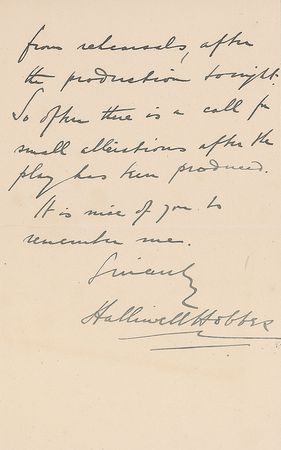 from rehearsals, after
the production tonight.
So often there is a call for
small alterations after the
play has been produced.
It is nice of you to
remember me.
Sincerely
Halliwell Hobbes